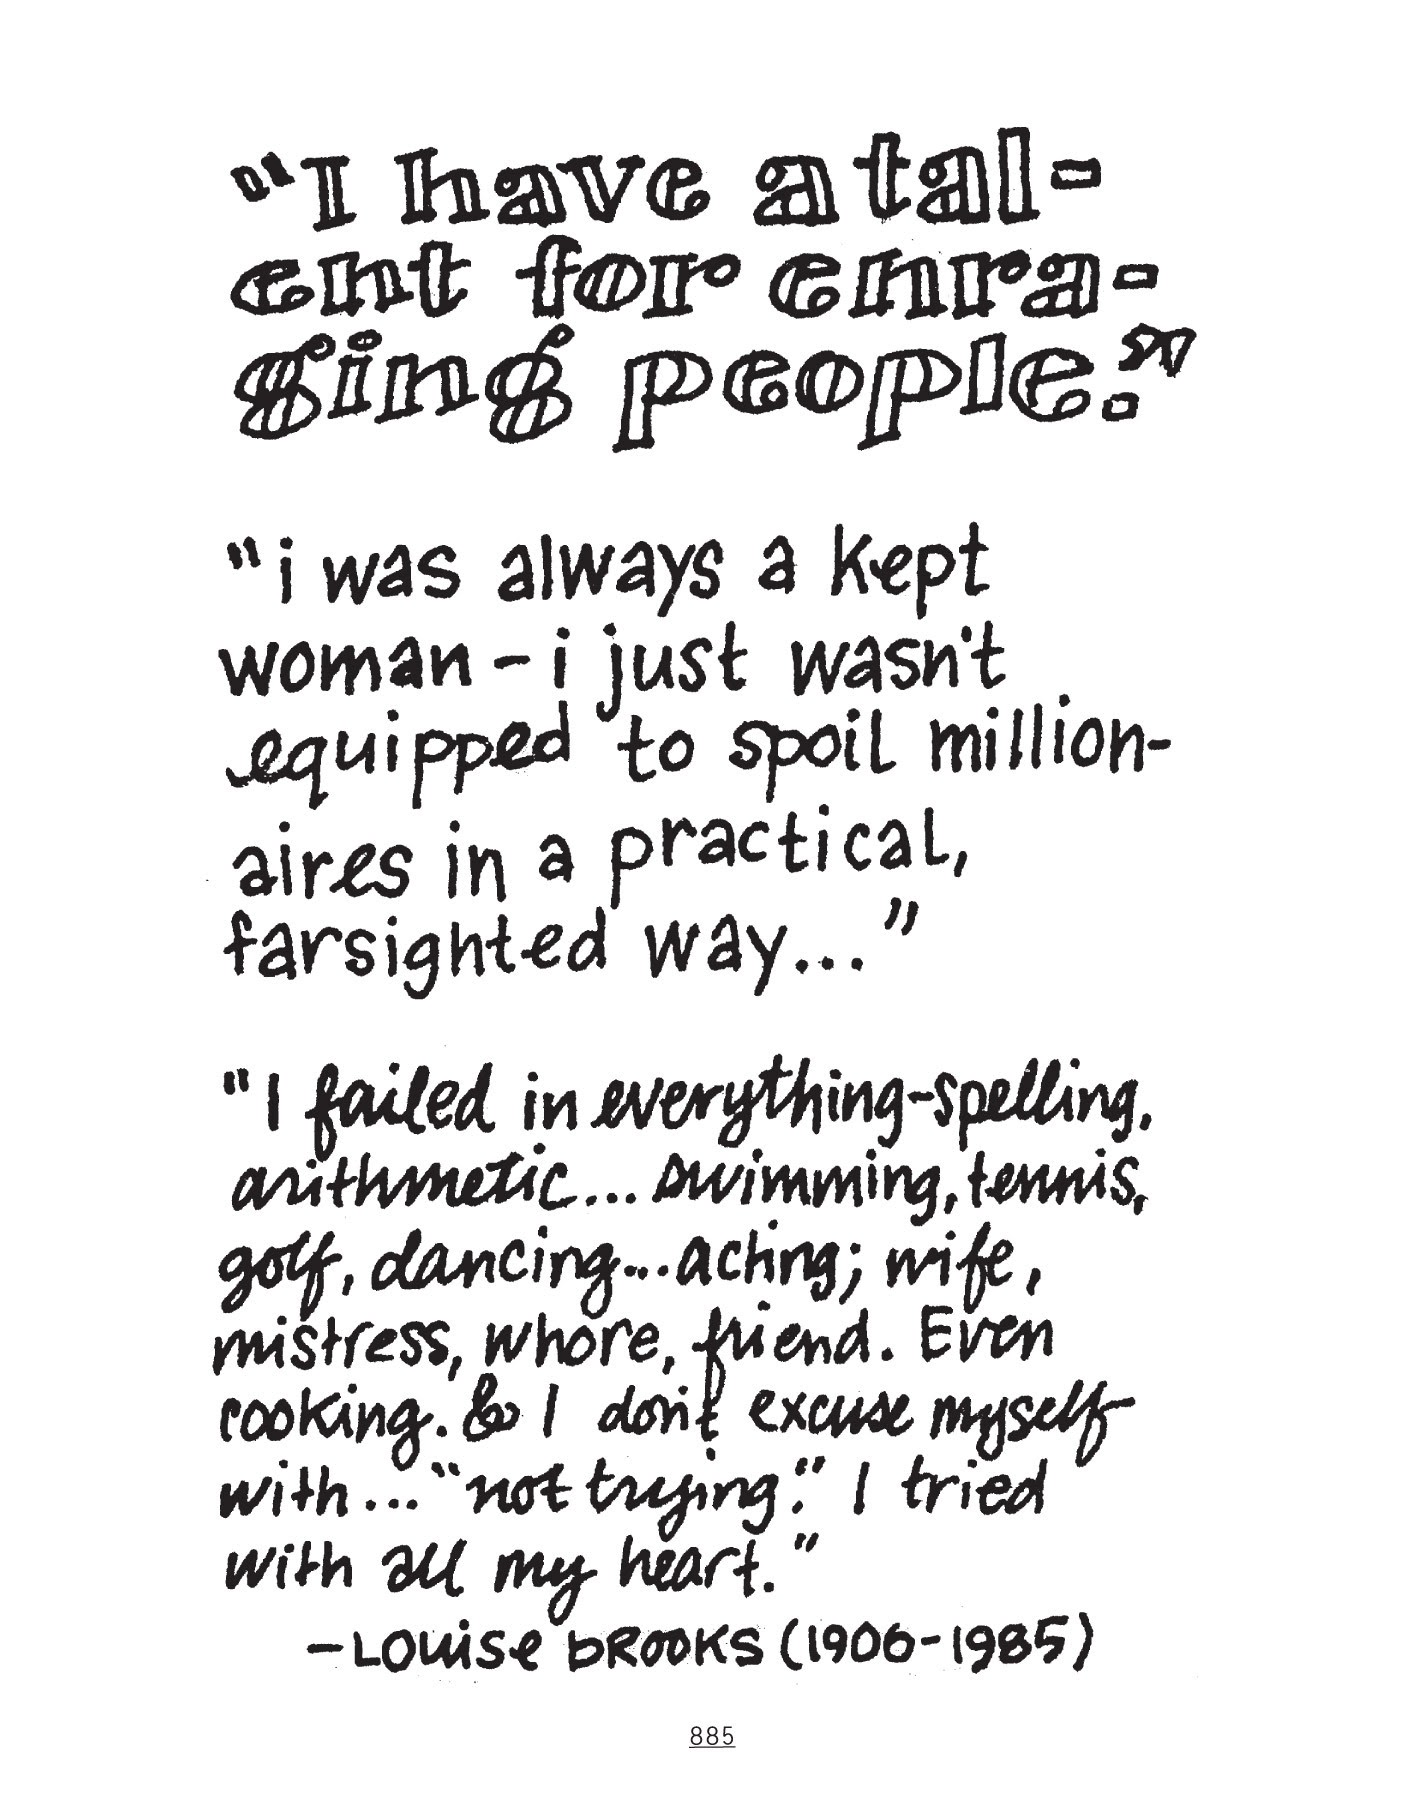 “I have a tal-
ent for enra-
ging people.”
“i was always a kept
woman – i just wasn't
equipped to spoil million-
aires in a practical,
farsighted way...”
“I failed in everything–spelling,
arithmetic... swimming, tennis,
golf, dancing...aching; wife,
mistress, whore, friend. Even
cooking. & I don't excuse myself
with... “not trying.” I tried
with all my heart.”
–Louise bROOKS (1906-1985)
885